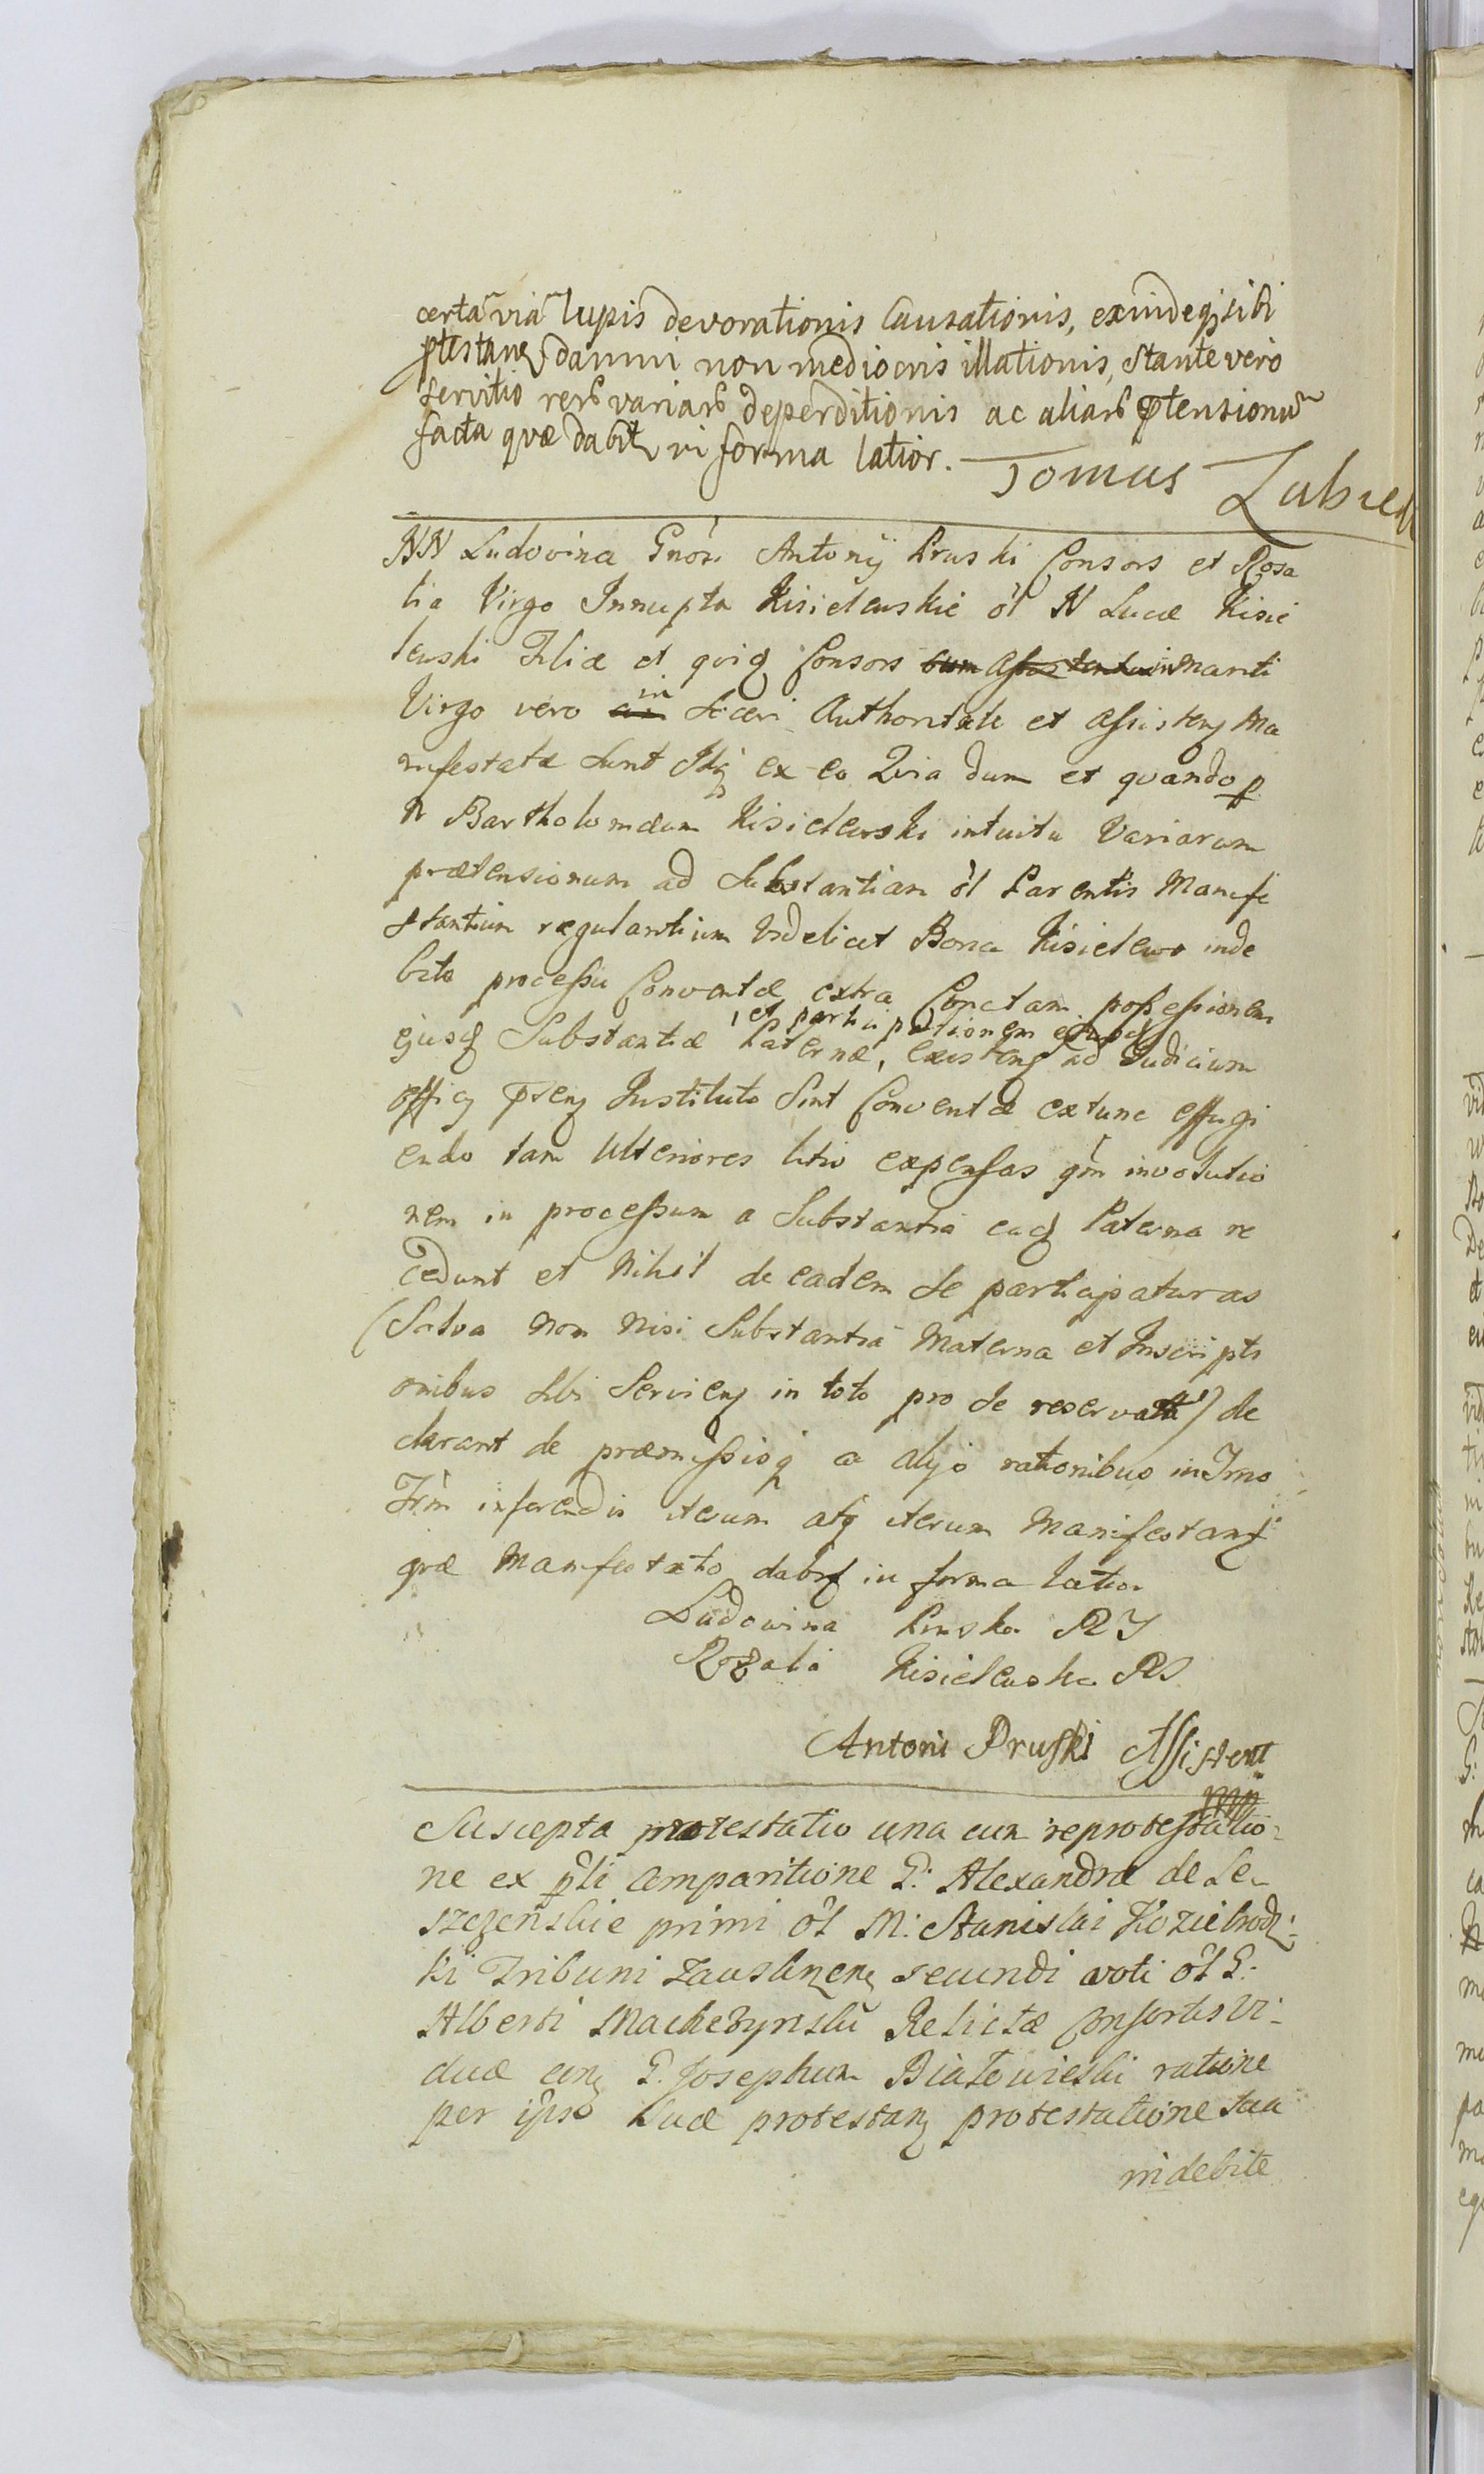 certa via lupis devorationis causationis, exindeqz sibi
ptestanz damni non mediocris illationis, stante vero
servitio rerb variarb deperditionis ac aliarb ptensionu
facta quæ dabit in forma latior. Tomus
NN Ludovina Gnosi Antonij Pruski Consors et Rosa
lia Virgo Innupta Kisielewskie ol N Lucæ Kisie
lewski Filiæ et quiq Consors cum mariti
Virgo vero in Soceri Authoritate et assistenz Ma
nifestatæ sunt Idqz ex eo Quia dum et quando p
N Bartholomæum Kisielewski intuitu Variarum
prætensionum ad Substantiam ol Parentis Manife
stantium regulantium Videlicet Bona Kisielewo inde
bito processu Conventæ extra Conctam possessionem
, et participationem ejusd
ejusq Substantiæ Paternæ, existenz ad Judicium
officy prenz Instituto Sint Conventæ extunc effugi
endo tam Ulteriores litis expensas qm involutio
nem in processum a Substantia eaq Paterna re
cedunt et Nihil de eadem se participaturas
(Salva non nisi Substantia Materna et Inscripti
onibus sibi Servienz in toto pro se reservatta) de
clarant de præmissisq ac alijs rationibus in Imo
Frm inferendis iterum atq iterum Manifestantz
qræ Manifestato dabit in forma latior
Ludowina Pruska RI
Rozalia Kisielewska RS
Antoni Pruski Assistent
mp
Suscepta protestatio una cum reprotestatio-
ne ex pli comparitione G: Alexandræ de Le-
szczenskie primi ol M: Stanislai Koziebrodz-
ki Tribuni Zauskrzenz secundi voti ol G:
Alberti Machczynski Relictæ Consortis Vi-
duæ conz G. Josephum Białowieski ratione
per ipso Suæ protestanz protestatione sua
indebite